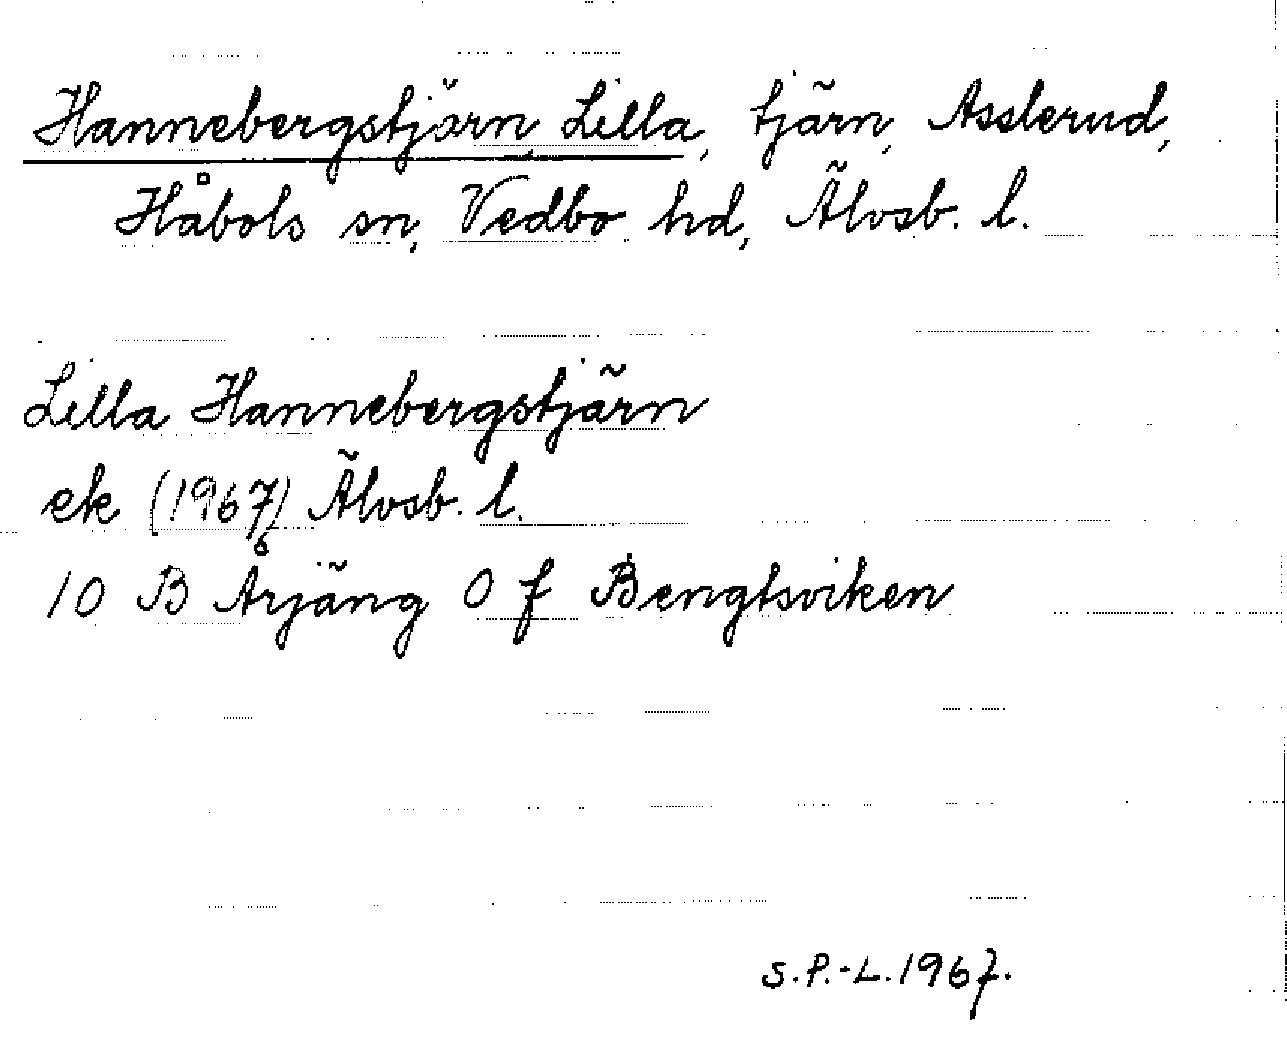 Hannebergstjärn, Lilla, tjärn, Asslerud,
Håbols sn, Vedbo hd, Älvsb. l.
Lilla Hannebergstjärn
ek (1967) Älvsb. l.
10 B Årjäng 0 f Bengtsviken
S.P.-L.1967.